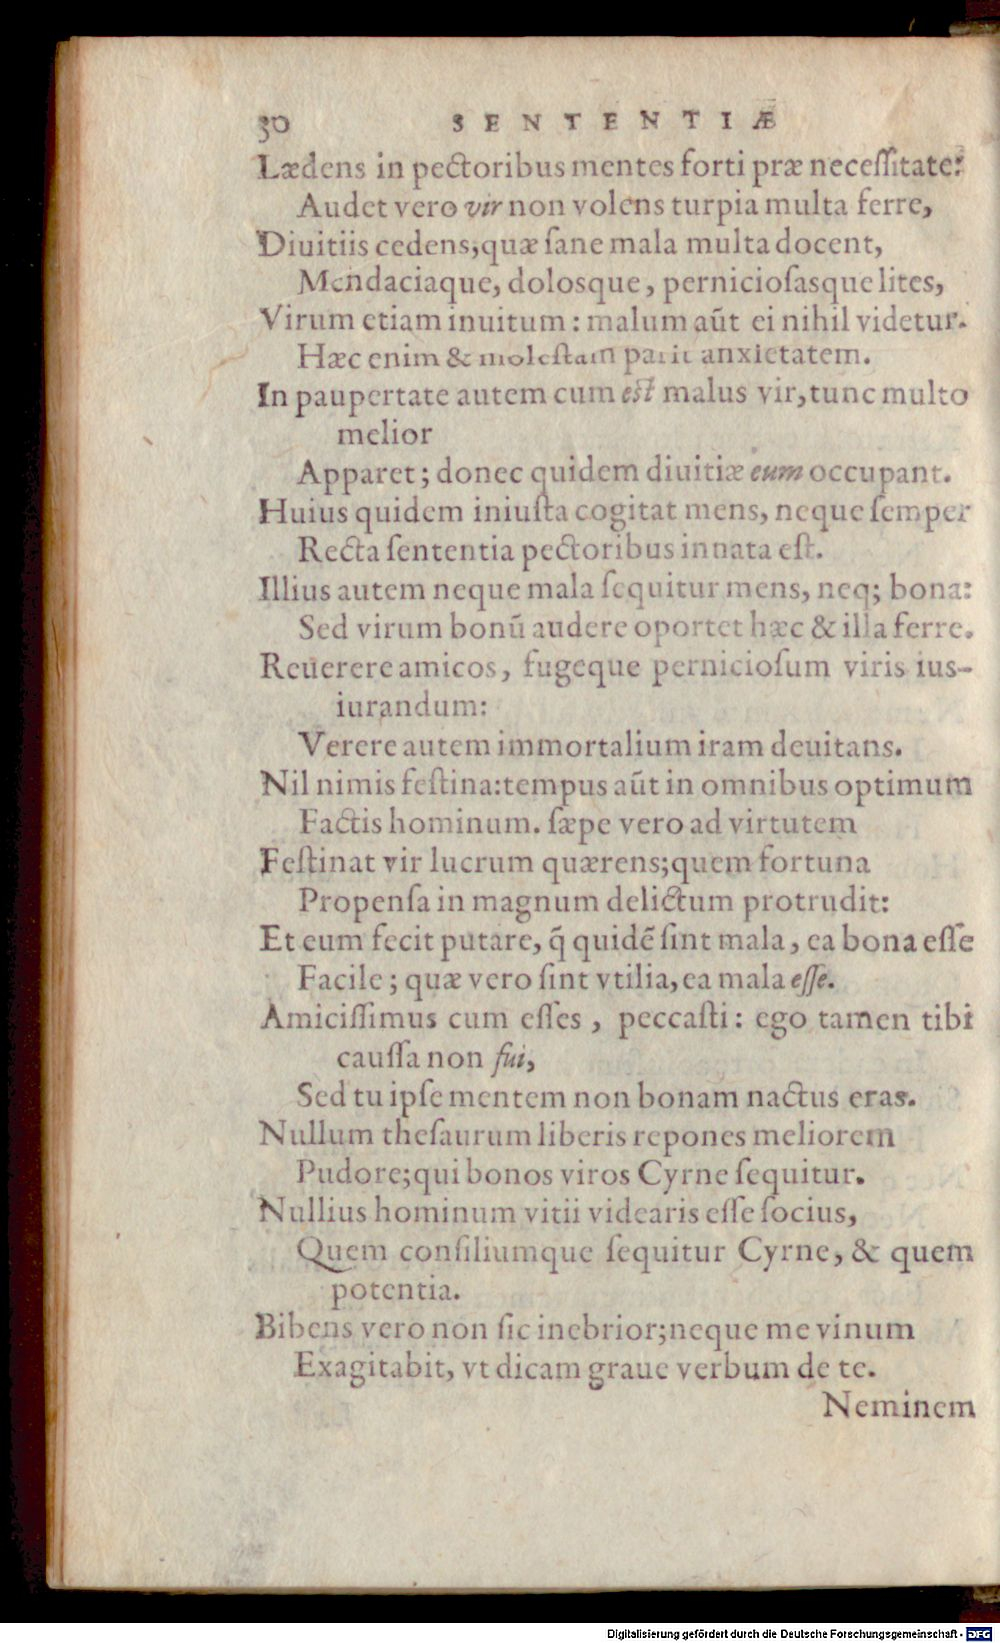 30 SENTENTIÆ
Lædens in pectoribus mentes forti præ neceſſitate:
Audet vero vir non volens turpia multa ferre,
Diuitiis cedens, quæ ſane mala multa docent,
Mendaciaque, dolosque, pernicioſasque lites,
Virum etiam inuitum: malum aūt ei nihil videtur.
Hæc enim & moleſtam parit anxietatem.
In paupertate autem cum eſt malus vir, tunc multo
melior
Apparet; donec quidem diuitiæ eum occupant.
Huius quidem iniuſta cogitat mens, neque ſemper
Recta ſententia pectoribus innata eſt.
Illius autem neque mala ſequitur mens, neq; bona:
Sed virum bonū audere oportet hæc & illa ferre.
Reuerere amicos, fugeque pernicioſum viris ius-
iurandum:
Verere autem immortalium iram deuitans.
Nil nimis feſtina: tempus aūt in omnibus optimum
Factis hominum. ſæpe vero ad virtutem
Feſtinat vir lucrum quærens; quem fortuna
Propenſa in magnum delictum protrudit:
Et eum fecit putare, q̄ quidē ſint mala, ea bona eſſe
Facile; quæ vero ſint vtilia, ea mala eſſe.
Amiciſſimus cum eſſes, peccaſti: ego tamen tibi
cauſſa non fui,
Sed tu ipſe mentem non bonam nactus eras.
Nullum theſaurum liberis repones meliorem
Pudore; qui bonos viros Cyrne ſequitur.
Nullius hominum vitii videaris eſſe ſocius,
Quem conſiliumque ſequitur Cyrne, & quem
potentia.
Bibens vero non ſic inebrior; neque me vinum
Exagitabit, vt dicam graue verbum de te.
Neminem
Digitalisierung gefördert durch die Deutsche Forschungsgemeinschaft - DFG